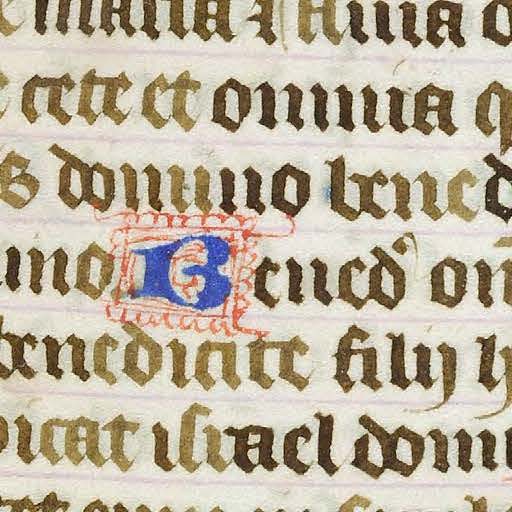 maria
cete et omnia q
s domino bened
ino Bened om
benedicite filij h
dicat israel domi